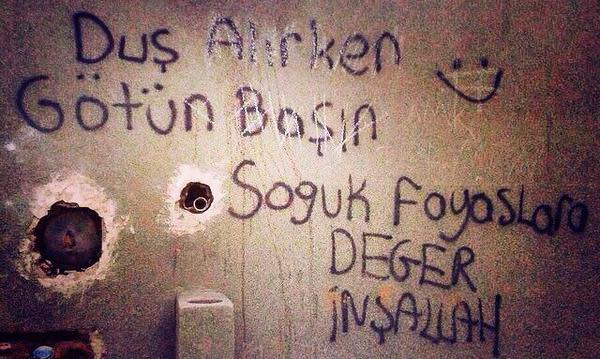 Duş Alırken
Götün Başın
Soguk fayasLara
DEGER
İNŞALLAH